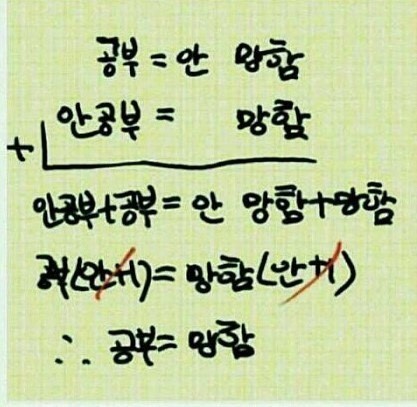 공부 = 안 망함
안공부 = 망함
+
안공부+공부 = 안 망함+망함
공부(안+1) = 망함(안+1)
∴ 공부 = 망함